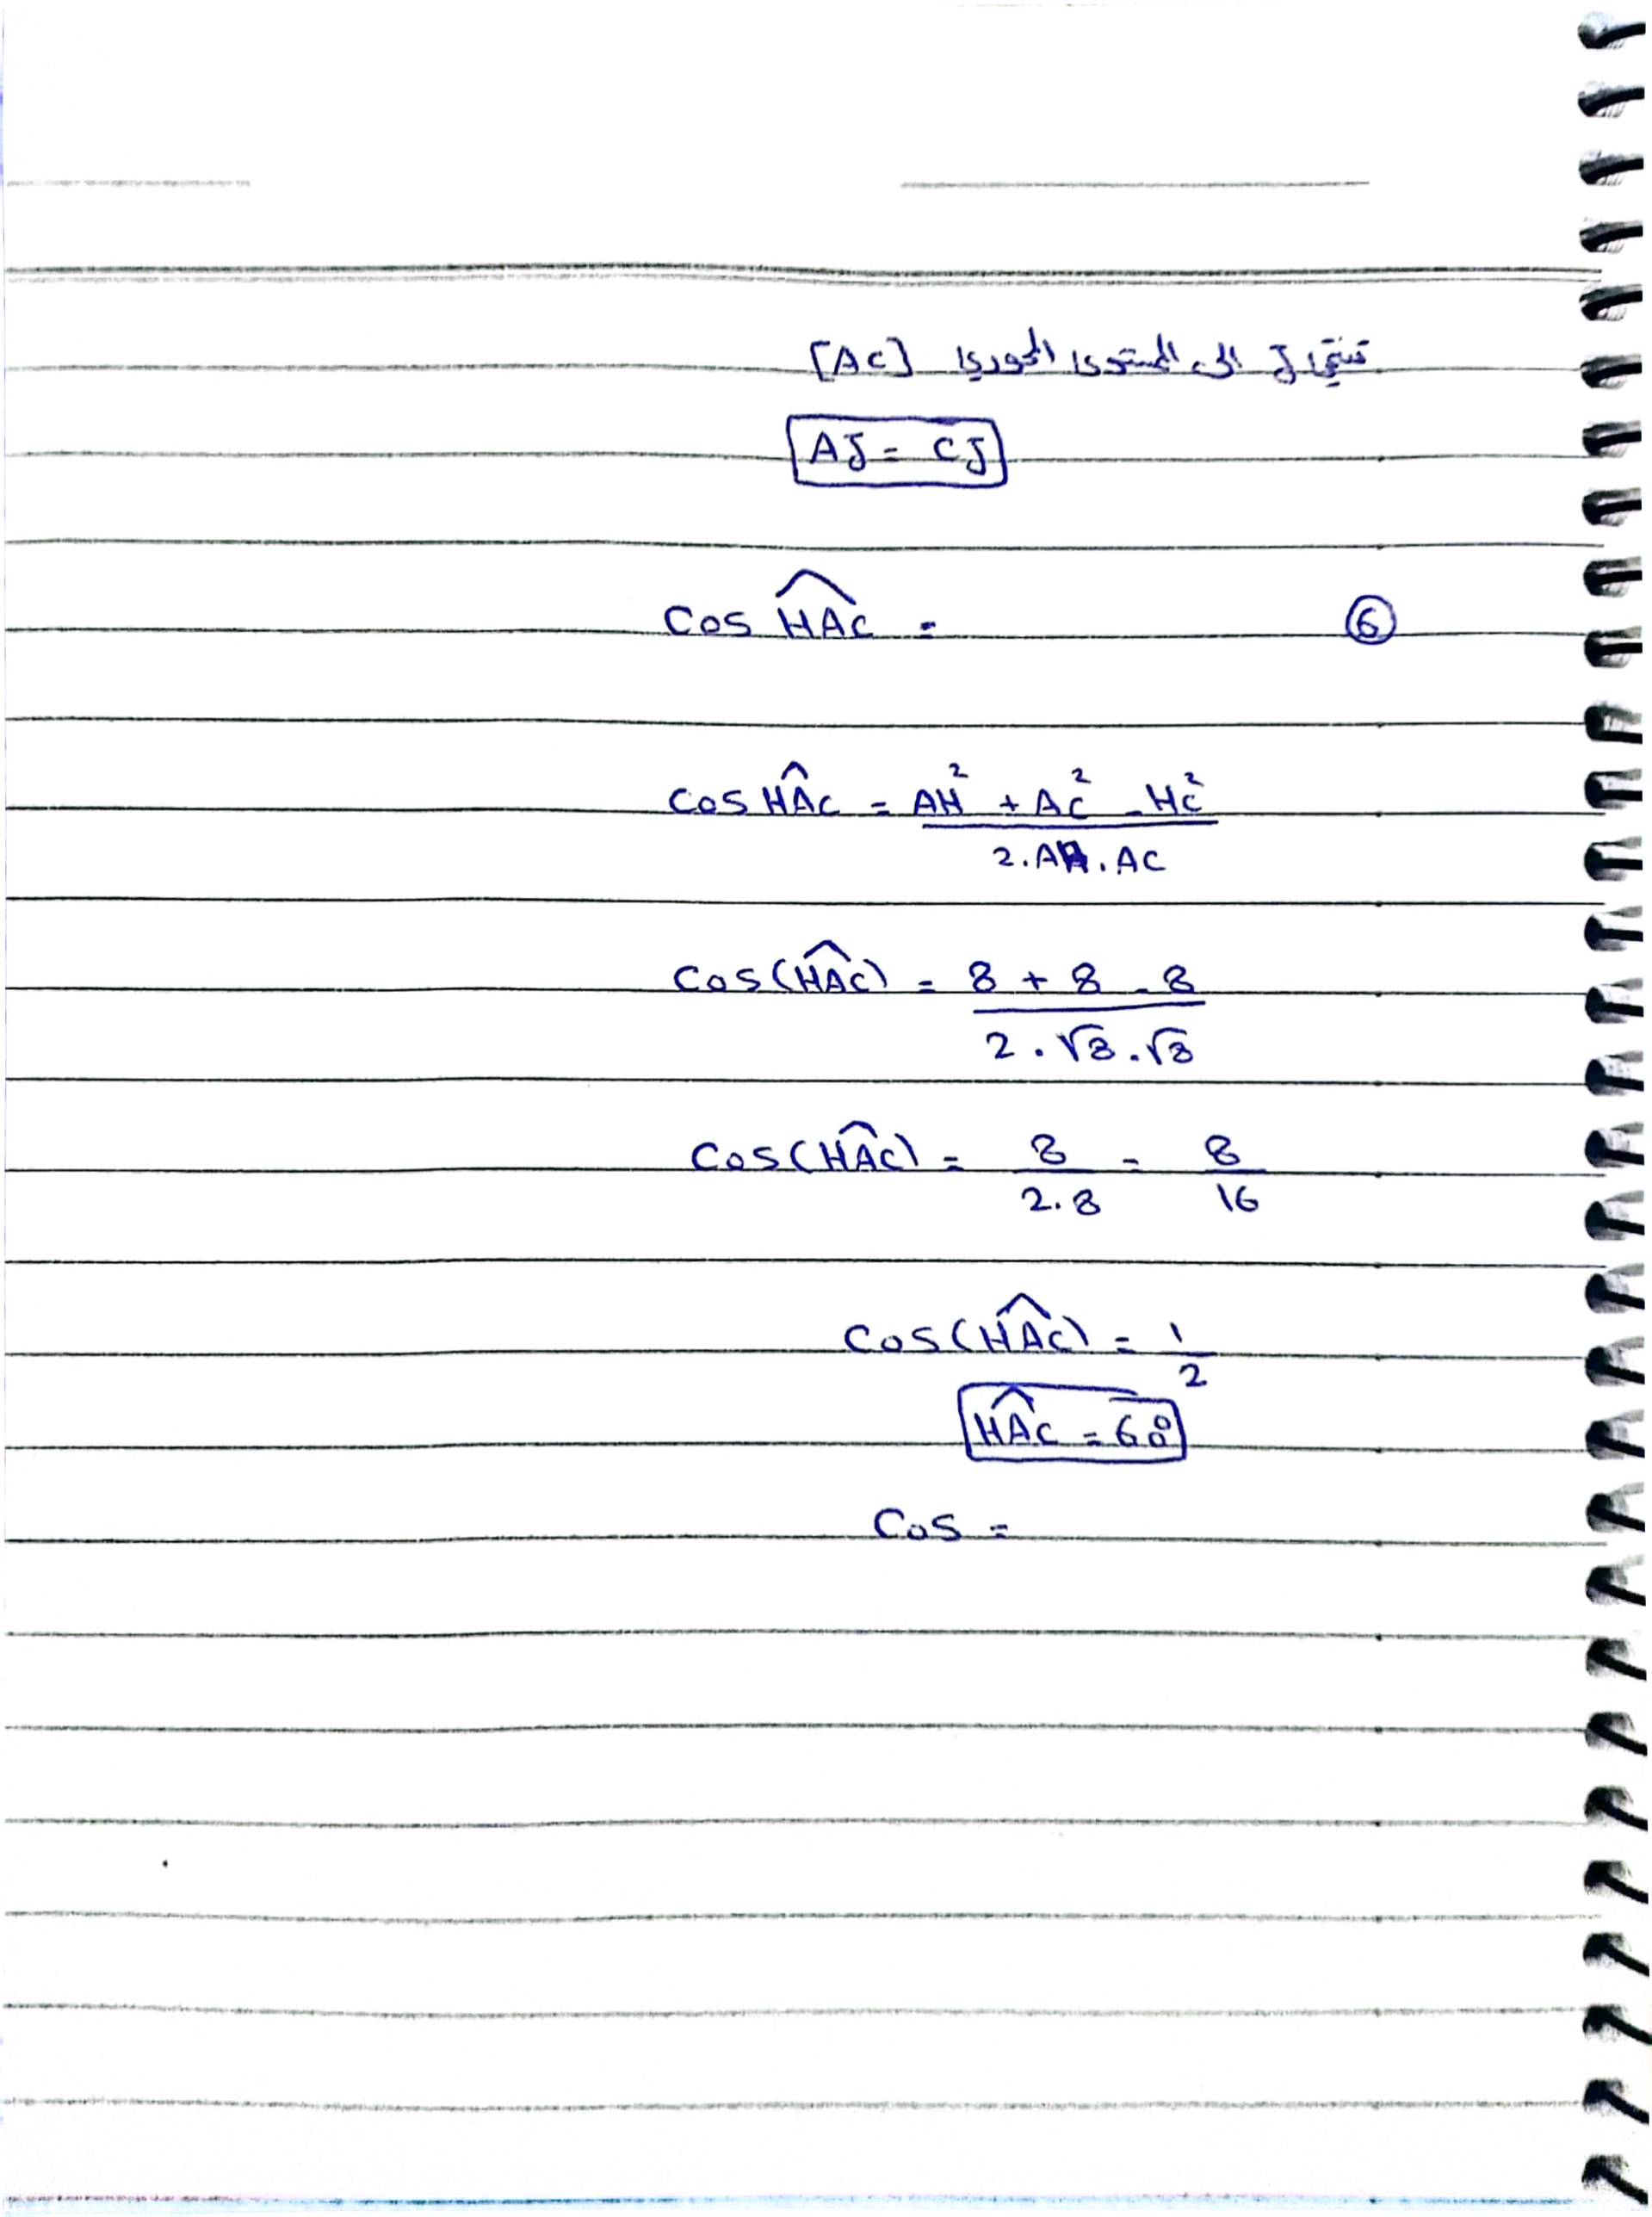 تنتمي J الى المستوى المحوري [AC]
AJ = CJ
⑥ Cos HAC =
Cos HAC = AH² + AC² - HC² / 2.AH.AC
Cos(HAC) = 8 + 8 - 8 / 2.√8.√8
Cos(HAC) = 8 / 2.8 = 8 / 16
Cos(HAC) = 1 / 2
HAC = 60°
Cos =